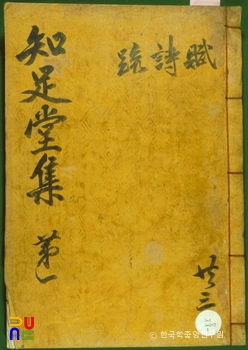 知足堂集 第一
賦詩疏
共三
© 한국학중앙연구원